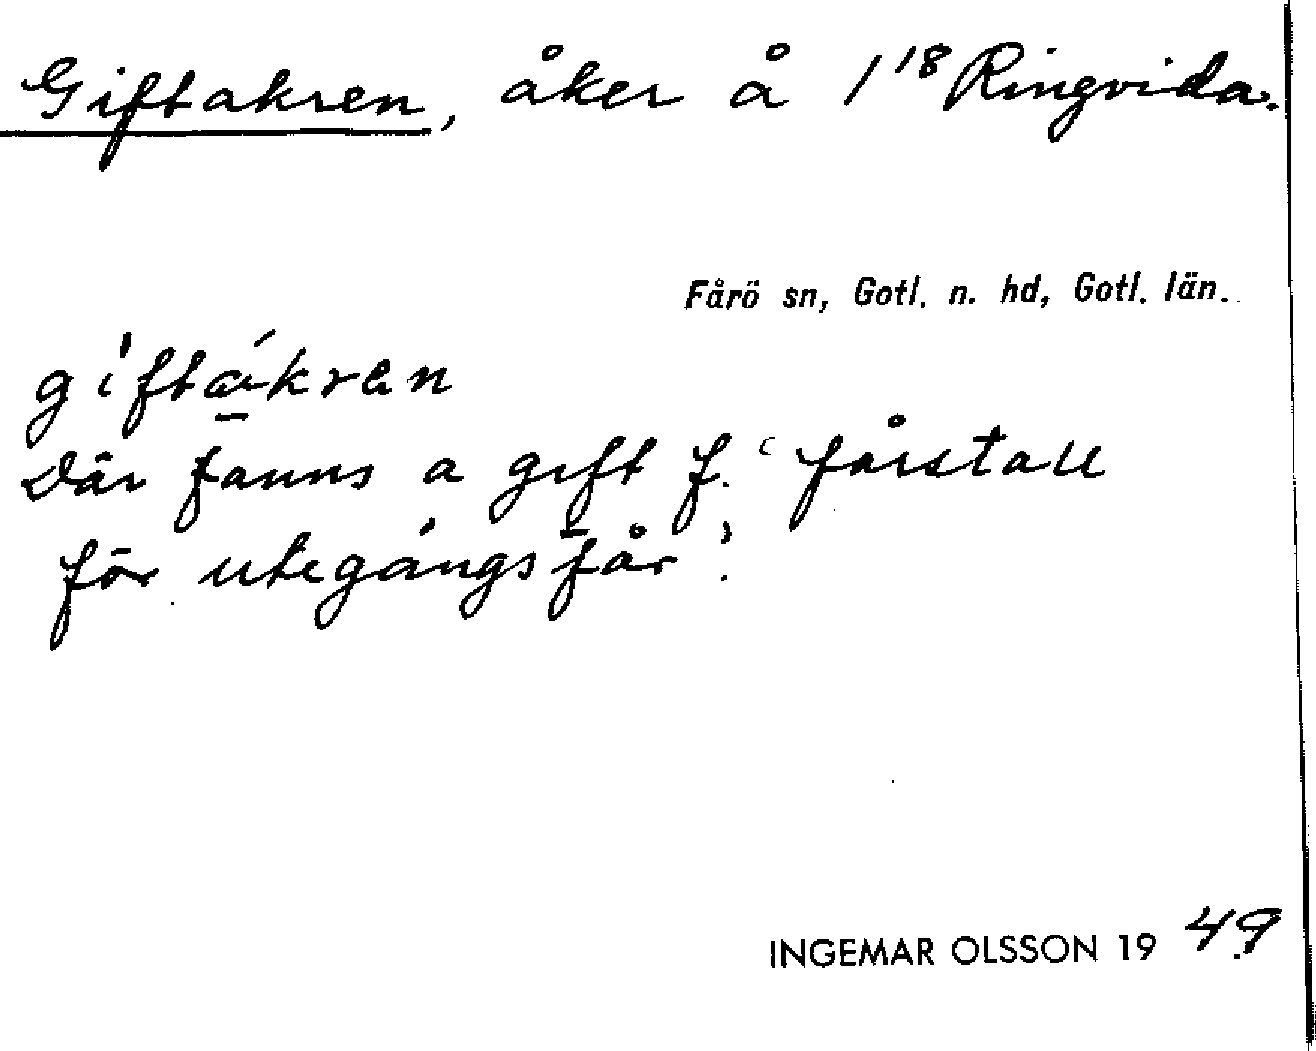 Giftakren, åker å 1¹⁸ Ringvida.
Fårö sn, Gotl. n. hd, Gotl. län.
giftákren
Där fanns a gift f. "fårstall
för utegångsfår".
INGEMAR OLSSON 1949